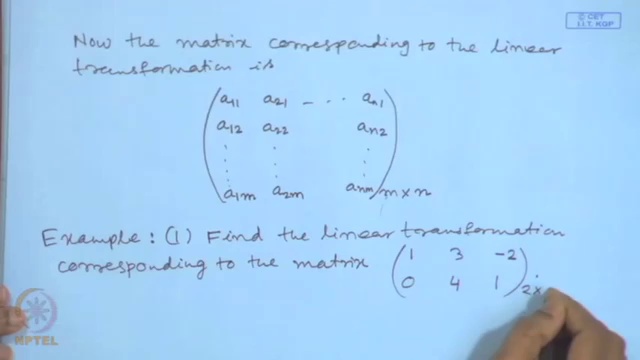 © CET
I.I.T. KGP
Now the matrix corresponding to the linear
transformation is
a11 a21 - ... an1
a12 a22 an2
⋮ ⋮ ⋮
a1m a2m anm m×n
Example: (1) Find the linear transformation
corresponding to the matrix ( 1 3 -2
0 4 1 ) 2×
NPTEL